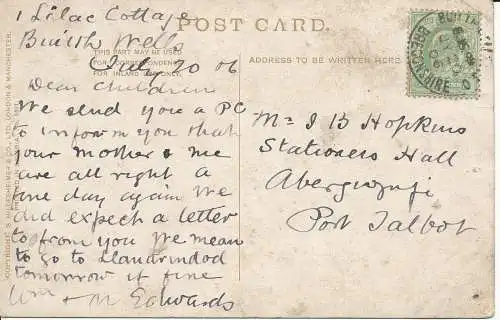 1 Lilac Cottage
Builth Wells
July 20 06
Dear Children
We send you a PC
to inform you that
your Mother & me
are all right a
fine day again We
did expect a letter
to from you We mean
to go to Llandrindod
tomorrow if fine
Wm & M Edwards
POST CARD.
THIS PART MAY BE USED
FOR CORRESPONDENCE
FOR INLAND ONLY.
ADDRESS TO BE WRITTEN HERE.
Mr J B Hopkins
Stationers Hall
Abergwynfi
Port Talbot
COPYRIGHT: S. HILDESHEIMER & CO., LTD. LONDON & MANCHESTER.